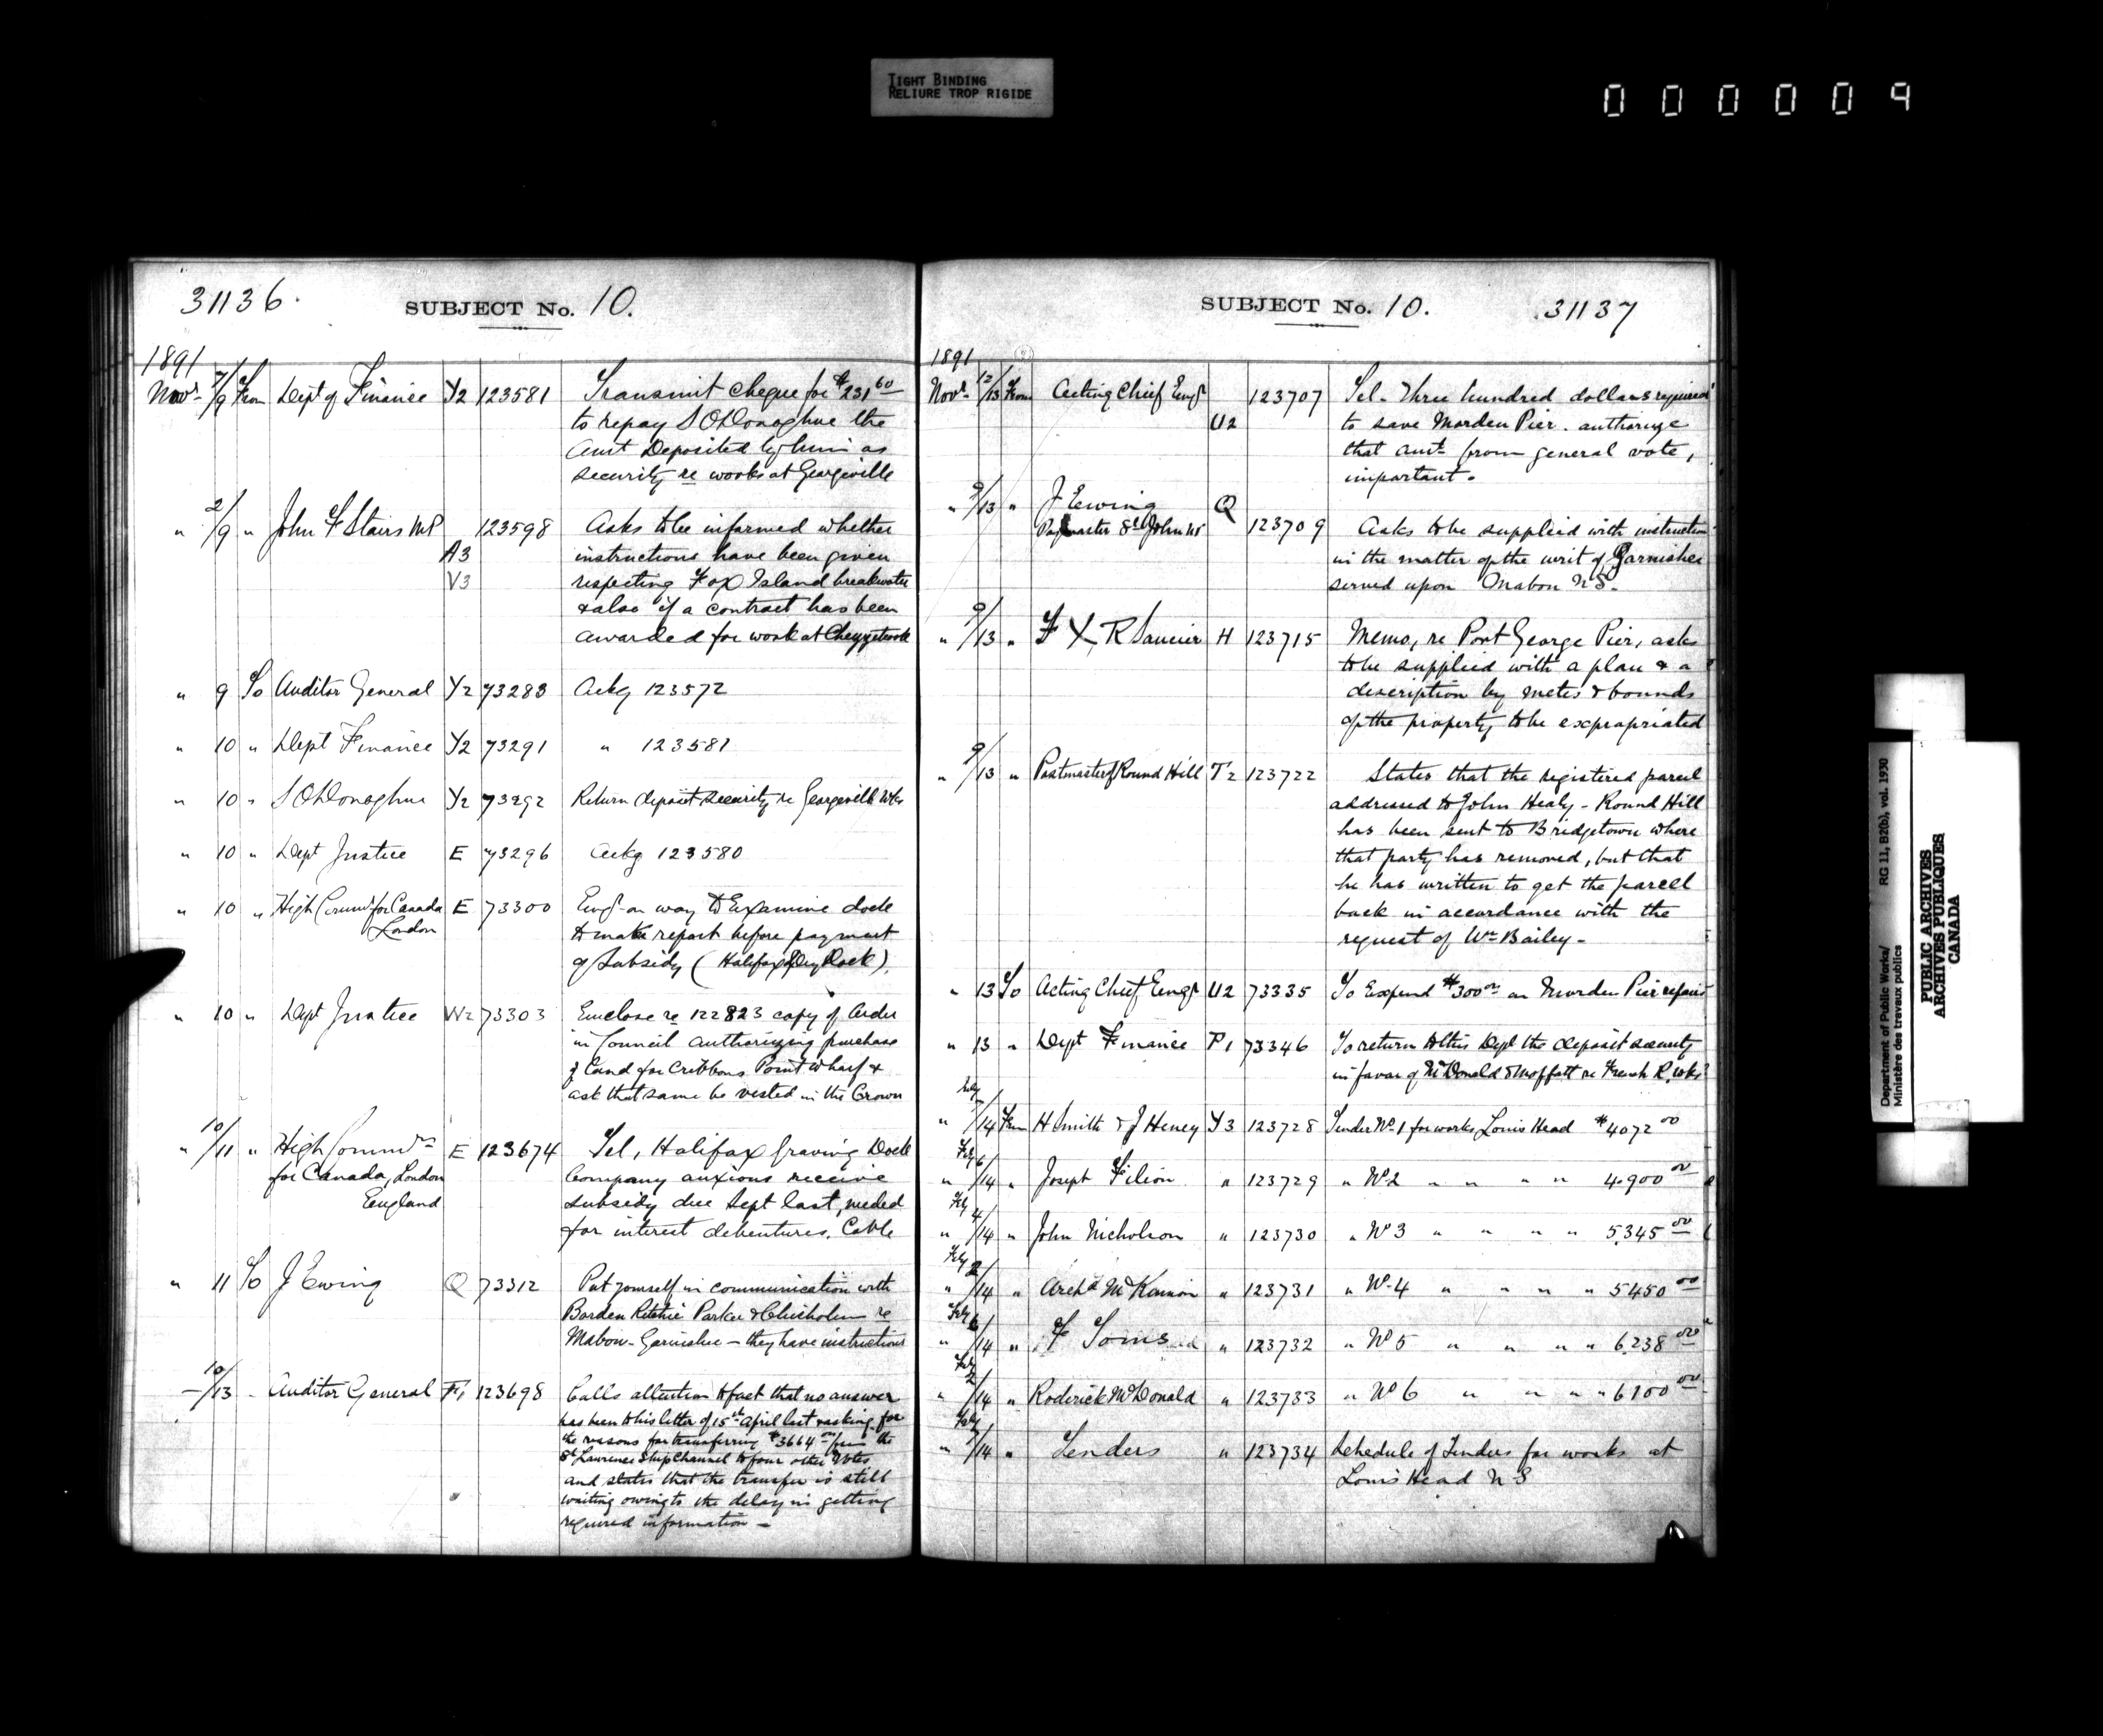 TIGHT BINDING
RELIURE TROP RIGIDE
000009
31136.
SUBJECT No. 10.
1891
Novr 7/9 From Dept of Finance Y2 123581 Transmit cheque for $231 60
to repay S O'Donoghue the
amt Deposited by him as
security re works at Georgeville
" 2/9 " John F Stairs MP 123598 Asks to be informed whether
A3 instructions have been given
V3 respecting Fox Island breakwater
& also if a contract has been
awarded for work at Chezzetcook
" 9 To Auditor General Y2 73283 Ackg 123572
" 10 " Dept Finance Y2 73291 " 123581
" 10 " S O'Donoghue Y2 73292 Return deposit security re Georgeville Wks
" 10 " Dept Justice E 73296 Ackg 123580
" 10 " High Commr for Canada E 73300 Engr on way to Examine dock
London to make report before payment
of Subsidy (Halifax Dry Dock).
" 10 " Dept Justice W2 73303 Enclose re 122823 copy of Order
in Council authorizing purchase
of Land for Cribbons Point Wharf &
ask that same be vested in the Crown
" 10/11 " High Commr E 123674 Tel, Halifax Graving Dock
for Canada, London Company anxious receive
England subsidy due Sept last, needed
for interest debentures. Cable
" 11 To J Ewing Q 73312 Put yourself in communication with
Borden Ritchie Parker & Chisholm re
Mabou - Garnishee - they have instructions
10/13 " Auditor General F1 123698 Calls attention to fact that no answer
has been to his letter of 15th April last asking for
the reasons for transferring $3664 00 from the
St Lawrence Ship Channel to four other Votes
and states that the transfer is still
waiting owing to the delay in getting
required information -
SUBJECT No. 10.
31137
1891
Novr 12/13 From Acting Chief Engr 123707 Tel - Three hundred dollars required
U2 to save Morden Pier. authorize
that amt from general vote,
important.
" 9/13 " J Ewing Q
Paymaster St John NB 123709 Asks to be supplied with instruction
in the matter of the writ of Garnishee
served upon Mabou N S.
" 9/13 " F X R Saucier H 123715 Memo, re Port George Pier, asks
to be supplied with a plan & a
description by metes & bounds
of the property to be expropriated
" 9/13 " Postmaster of Round Hill T2 123722 States that the registered parcel
addressed to John Healy - Round Hill
has been sent to Bridgetown where
that party has removed, but that
he has written to get the parcel
back in accordance with the
request of Wm Bailey -
" 13 To Acting Chief Engr U2 73335 To Expend $300 00 on Morden Pier repairs
" 13 " Dept Finance P1 73346 To return to this Dept the deposit security
in favor of McDonald & Moffatt re French R. wks
" 14 From H Smith & J Heney Y3 123728 Tender No 1 for works Louis Head $4072 00
" 14 " Joseph Filion " 123729 " No 2 " " " " 4.900 00
" 14 " John Nicholson " 123730 " No 3 " " " " 5.345 00
" 14 " Archd McKinnon " 123731 " No 4 " " " " 5450 00
" 14 " F Toms " 123732 " No 5 " " " " 6.238 00
" 14 " Roderick McDonald " 123733 " No 6 " " " " 6100 00
" 14 " Tenders " 123734 Schedule of Tenders for works at
Louis Head N S
Department of Public Works/ RG 11, B2(b), vol. 1930
Ministère des travaux publics
PUBLIC ARCHIVES
ARCHIVES PUBLIQUES
CANADA